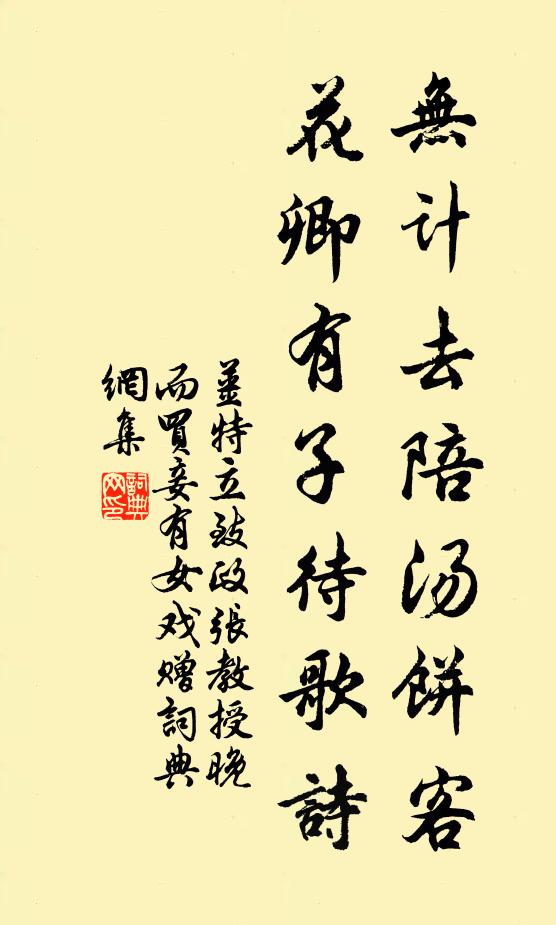 無计去陪汤餅客
花卿有子待歌詩
薑特立致政張教授晚
而買妾有女戏赠詞典
網集
詞典
网印